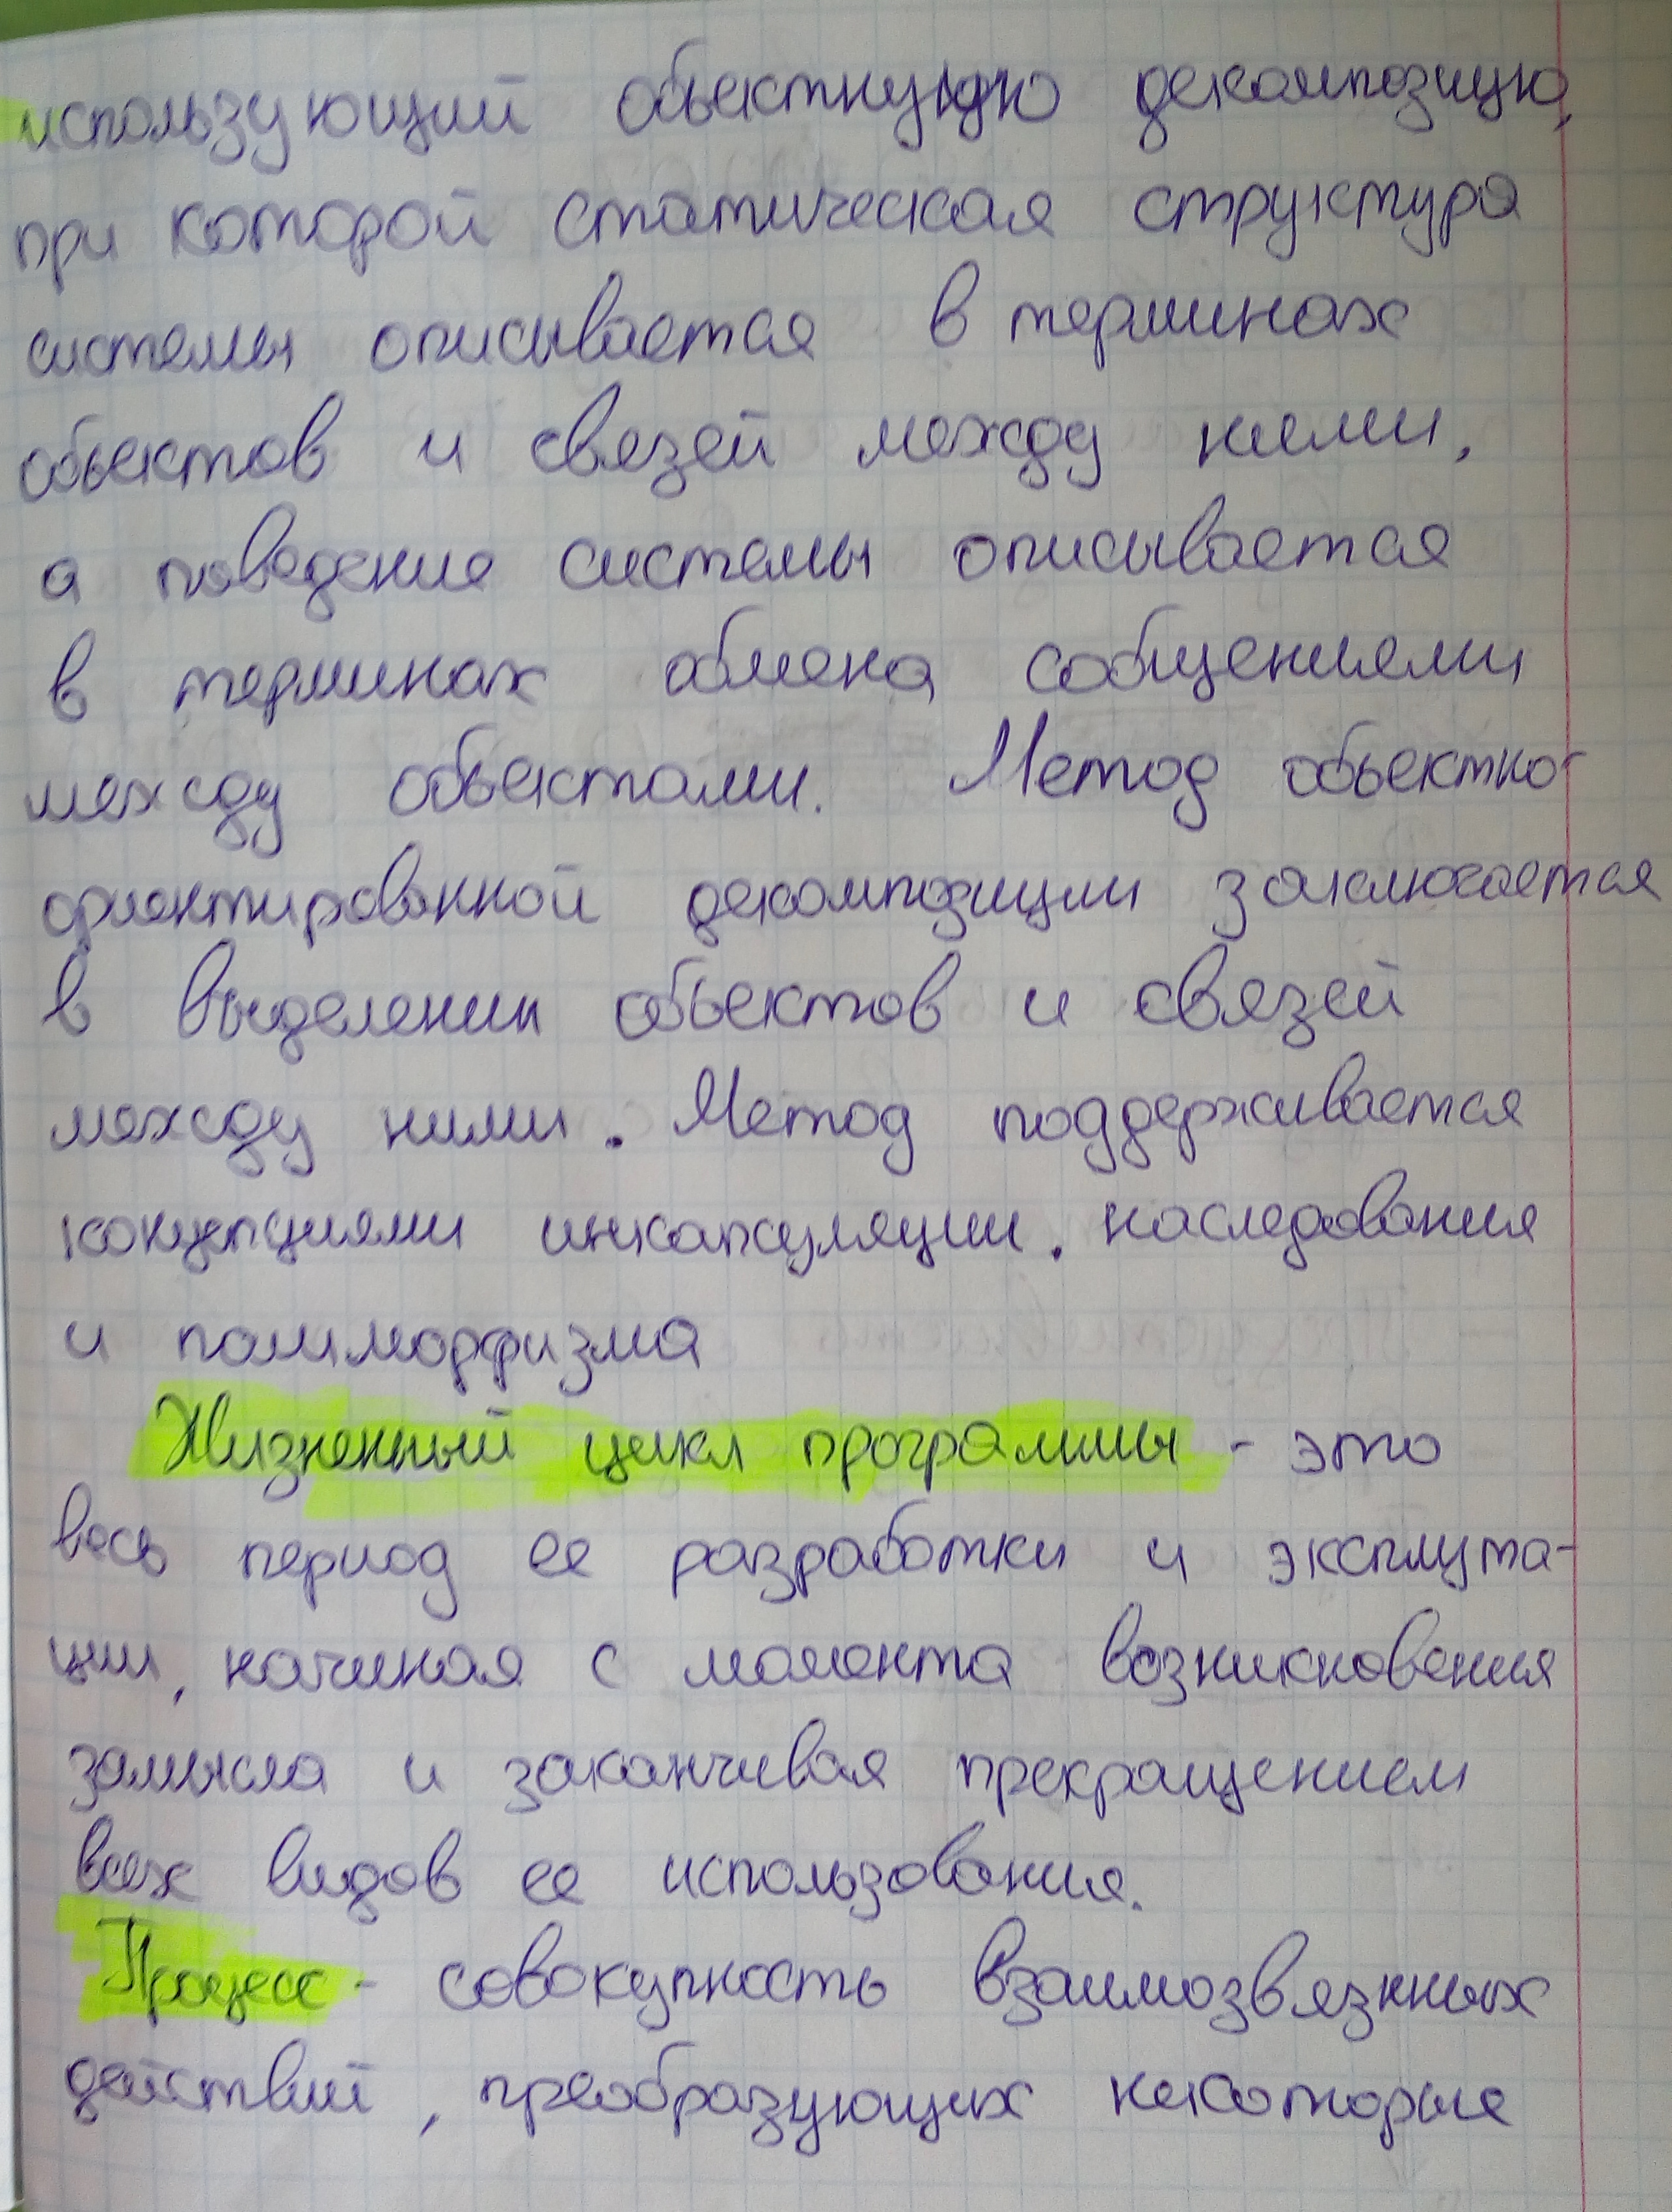 использующий обьектную декомпозицию,
при которой статическая структура
системы описывается в терминах
обьектов и связей между ними,
а поведение системы описывается
в терминах обмена сообщениями
между обьектами. Метод обьектно-
ориентированной декомпозиции заключается
в выделении обьектов и связей
между ними. Метод поддерживается
концепциями инкапсуляции, наследования
и полиморфизма
Жизненный цикл программы - это
весь период ее разработки и эксплута-
ции, начиная с момента возникновения
замысла и заканчивая прекращением
всех видов ее использования.
Процесс - совокупность взаимозвязнных
действий, преобразующих некоторые